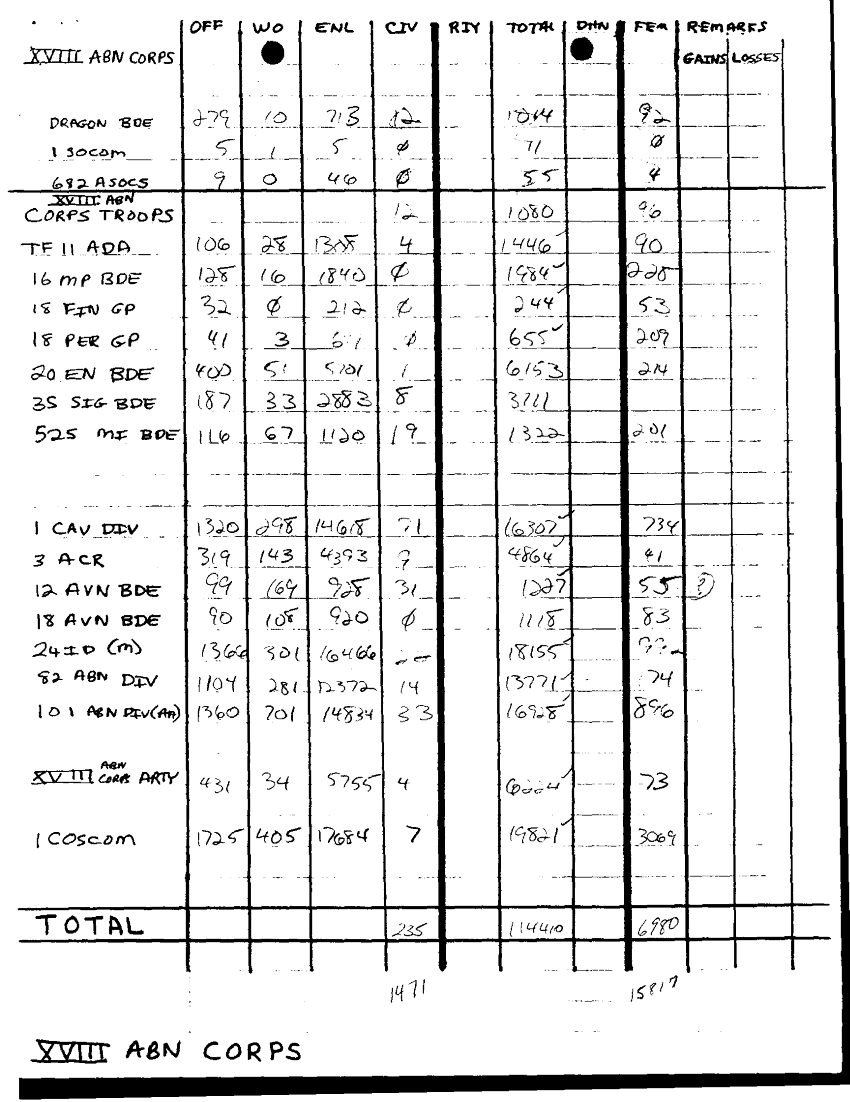 OFF WO ENL CIV RIY TOTAL DHN FEM REMARKS
XVIII ABN CORPS GAINS LOSSES
DRAGON BDE 279 10 713 12 1014 92
1 SOCOM 5 1 5 ∅ 11 ∅
682 ASOCS 9 0 46 ∅ 55 4
XVIII ABN
CORPS TROOPS 12 1080 96
TF 11 ADA 106 28 1308 4 1446✓ 90
16 MP BDE 128 16 1840 ∅ 1984✓ 228
18 FIN GP 32 ∅ 212 ∅ 244✓ 53
18 PER GP 41 3 ∅ 655✓ 209
20 EN BDE 400 51 5701 1 6153 214
35 SIG BDE 187 33 2883 8 3111
525 MI BDE 116 67 1120 19 1322 201
1 CAV DIV 1320 298 14618 71 16307✓ 734
3 ACR 319 143 4393 9 4864✓ 41
12 AVN BDE 99 169 928 31 1227✓ 55 ?
18 AVN BDE 90 108 920 ∅ 1118 83
24 ID (M) 1366 301 16466 18155✓
82 ABN DIV 1104 281 12372 14 13771✓ 174
101 ABN DIV (AA) 1360 701 14834 33 16928✓ 896
XVIII ABN CORPS ARTY 431 34 5755 4 6224✓ 73
1 COSCOM 1725 405 17684 7 19821✓ 3069
TOTAL 235 114410 6980
1471 15817
XVIII ABN CORPS